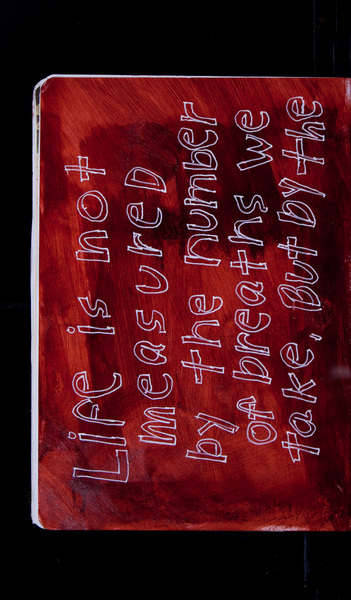 Life is not
measured
by the number
of breaths we
take, But by the